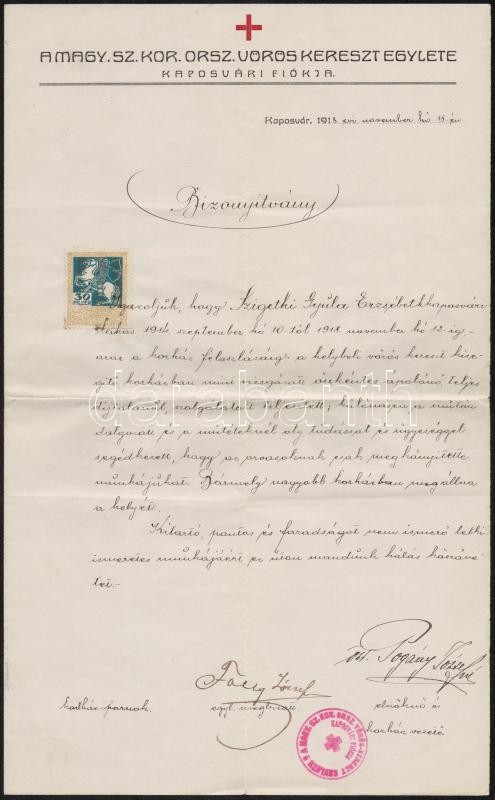 A MAGY. SZ. KOR. ORSZ. VÖRÖS KERESZT EGYLETE
KAPOSVÁRI FIÓKJA.
Kaposvár, 1918 évi november hó 15 én
Bizonyítvány.
30
FILLÉR
Igazoljuk, hogy Szigethi Gyula Erzsébet kaposvári
lakos 1914. szeptember hó 10.-től 1918. november hó 12-ig
azaz a kórház feloszlásáig a helybeli vörös kereszt kise-
gítő kórházban mint vizsgázott önkéntes ápolónő teljes
díjtalanul szolgálatot teljesített; különösen a műtőn
dolgozott és a műtéteknél oly tudással és ügyességgel
segédkezett, hogy az orvosoknak csak megkönyítette
munkájukat. Bármely nagyobb kórházban megállna
a helyét.
Kitartó, pontos és fáradságot nem ismerő lelki-
ismeretes munkájáért ez úton mondunk hálás köszöne-
tet.-
Pogány
József
elnöknő és
kórház vezető.
darabanth
A MAGY. SZ. KOR. ORSZ. VÖRÖS-KERESZT EGYLETE
KAPOSVÁRI FIÓKJA